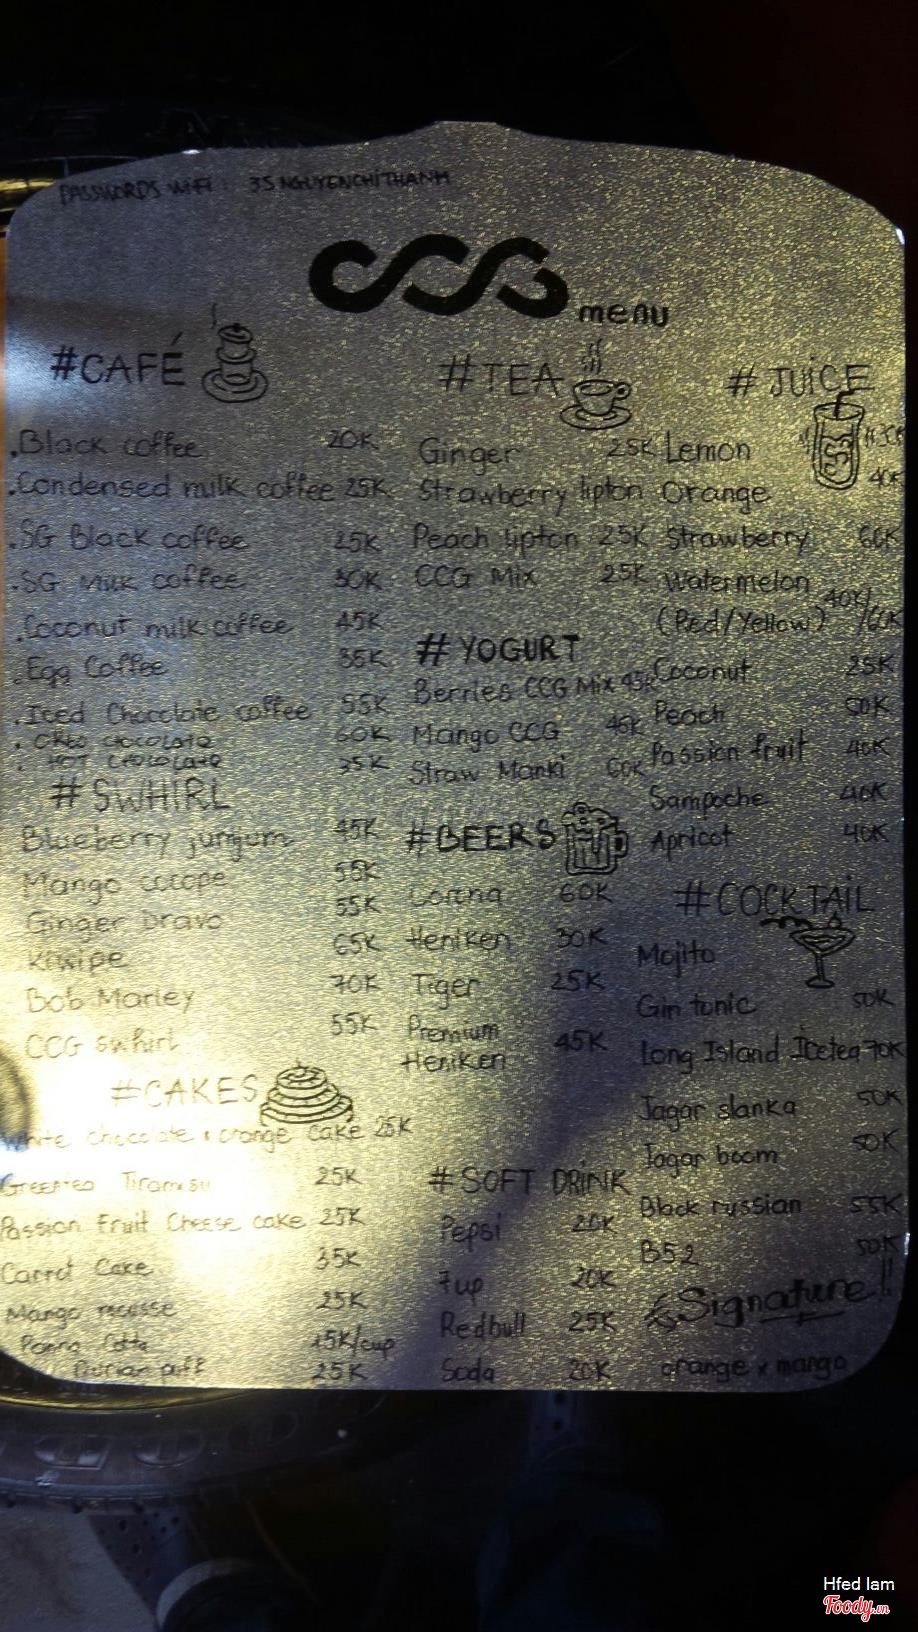 PASSWORDS WIFI : 35 NGUYENCHITHANH
CCG menu
#CAFÉ
.Black coffee 20K
.Condensed milk coffee 25K
.SG Black coffee 25K
.SG Milk coffee 30K
.Coconut milk coffee 45K
.Egg Coffee 35K
.Iced Chocolate coffee 55K
. OREO CHOCOLATE 60K
. HOT CHOCOLATE 35K
#SWHIRL
Blueberry jungum 45K
Mango cocope 55K
Ginger Bravo 55K
Kiwipe 65K
Bob Marley 70K
CCG swhirl 55K
#CAKES
White chocolate x orange cake 25K
Greentea Tiramisu 25K
Passion Fruit Cheese cake 25K
Carrot Cake 35K
Mango mousse 25K
Panna Cotta 15K/cup
Durian puff 25K
#TEA
Ginger 25K
Strawberry lipton
Peach lipton 25K
CCG Mix 25K
#YOGURT
Berries CCG Mix 45K
Mango CCG 45K
Straw Manki 60K
#BEERS
Corona 60K
Heniken 30K
Tiger 25K
Premium
Heniken 45K
#SOFT DRINK
Pepsi 20K
7up 20K
Redbull 25K
Soda 20K
#JUICE
Lemon
Orange 40K
Strawberry 60K
Watermelon
(Red/Yellow) 40K/
Coconut 25K
Peach 50K
Passion fruit 40K
Sampoche 40K
Apricot 40K
#COCKTAIL
Mojito
Gin tonic 50K
Long Island Icetea 70K
Jagar slanka 50K
Jagar boom 50K
Black russian 55K
B52 50K
Signature!!
orange x mango
Hfed Iam
Foody.vn